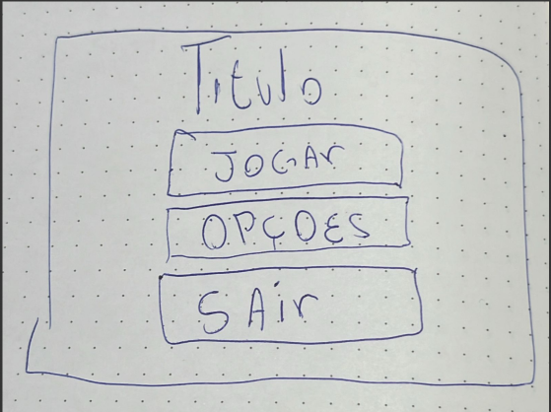 Titulo
JOGAr
OPÇOES
SAir